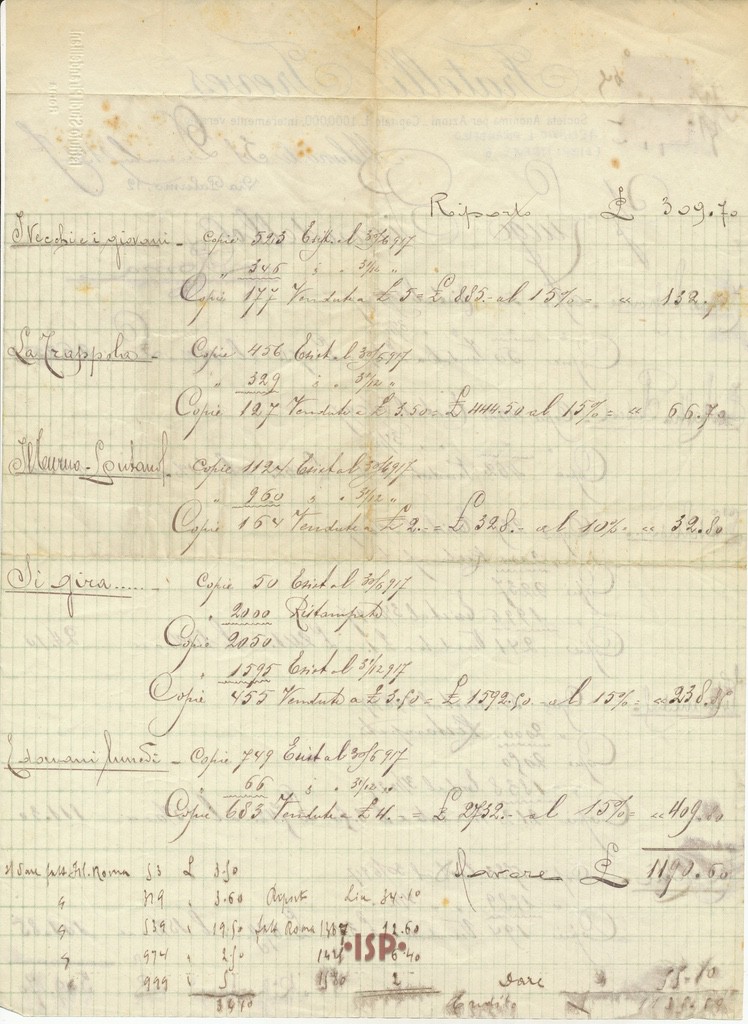 Fratelli Treves
Società Anonima per Azioni
Riporto £ 309.70
I Vecchi e i giovani - Copie 523 Esist. al 30/6 917
" 346 " " 31/12 "
Copie 177 Vendute a £ 5 = £ 885.- al 15% = " 132.70
La Trappola - Copie 456 Esist al 30/6 917
" 329 " " 31/12 "
Copie 127 Vendute a £ 3.50 = £ 444.50 al 15% = " 66.70
Il turno - Lontano - Copie 1124 Esist al 30/6 917
" 960 " " 31/12 "
Copie 164 Vendute a £ 2.- = £ 328.- al 10% " 32.80
Si gira..... - Copie 50 Esist al 30/6 917
" 2000 Ristampate
Copie 2050
" 1595 Esist al 31/12 917
Copie 455 Vendute a £ 3.50 = £ 1592.50 - al 15% = " 238.
E domani lunedì - Copie 749 Esist al 30/6 917
" 66 " " 31/12 "
Copie 683 Vendute a £ 4.- = £ 2732.- al 15% = " 409.
Avere £ 1190.60
Dare fatt Fil. Roma 53 L 3.50
" 319 " 3.60 Riport Lire 34.10
" 539 " 19.50 fatt Roma 1387 12.60
" 974 " 2.50 6.40
" 999 " 5 1580 2 Dare " 55.10
34.10 Credito
ISP